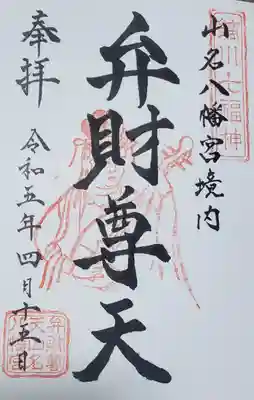 七福神
山名八幡宮境内
弁財尊天
奉拝
令和五年四月十五日